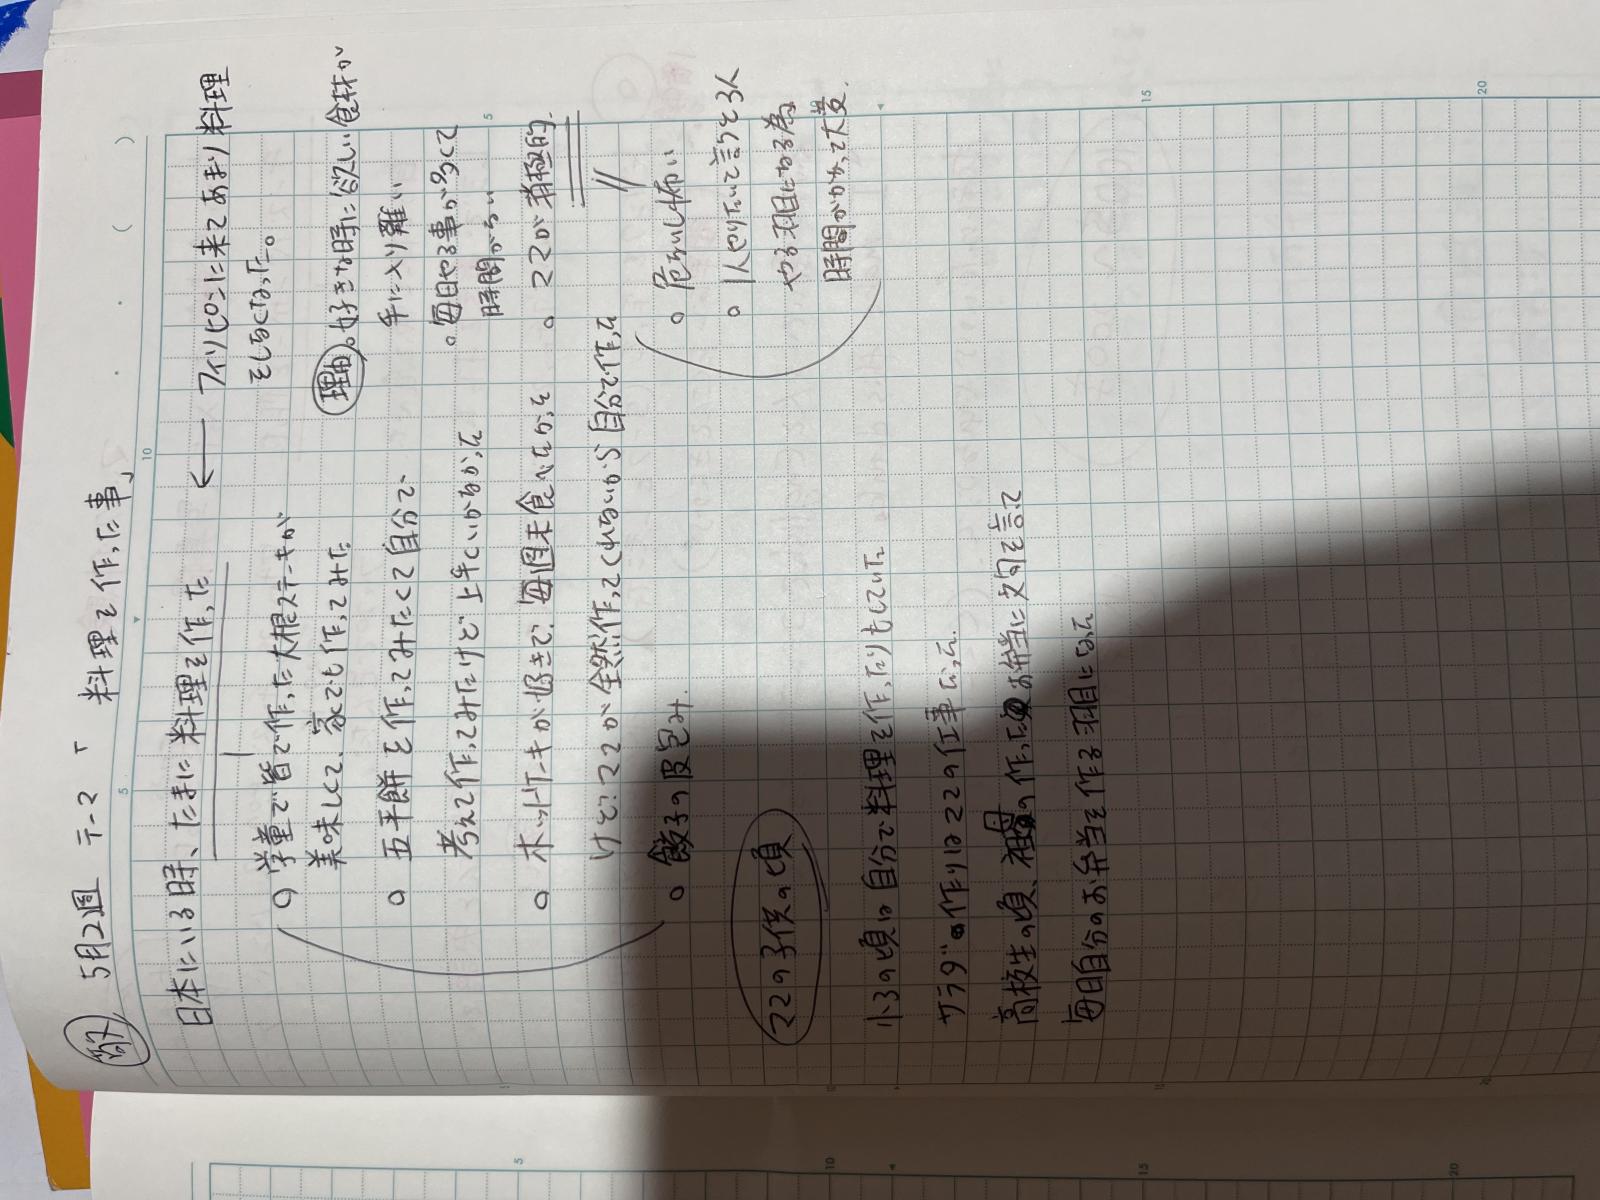 5月2週 テーマ「料理を作った事」
日本にいる時、たまに料理を作った
学童で皆で作った大根ステーキが
美味しくて、家でも作ってみた
五平餅を作ってみたくて自分で
考えて作ってみたけど上手くいかなかった
ホットケーキが好きで、毎週末食べたかった
けど、ママが全然作ってくれないから自分で作った
餃子の皮包み
← フィリピンに来てあまり料理
をしなくなった。
理由
好きな時に欲しい食材が
手に入り難い
毎日やる事が多くて
時間がない
ママが消極的
危ないし怖い
1人やりたいって言うと3人
やる羽目になる為
時間がかかって大変
ママの子供の頃
小3の頃は自分で料理を作ったりもしていた
サラダ作りはママの仕事だった
高校生の頃、祖母の作ったお弁当に文句を言って
毎日自分のお弁当を作る羽目になった
5
10
5
15
20
5
10
15
20